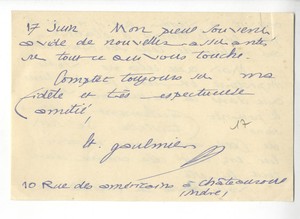 17 juin Mon pieux souvenir
avide de nouvelles
sur tout ce qui vous touche.
Comptez toujours sur ma
fidèle et très respectueuse
amitié,
gaulmier
17
10 Rue des américains à Châteauroux
(Indre)